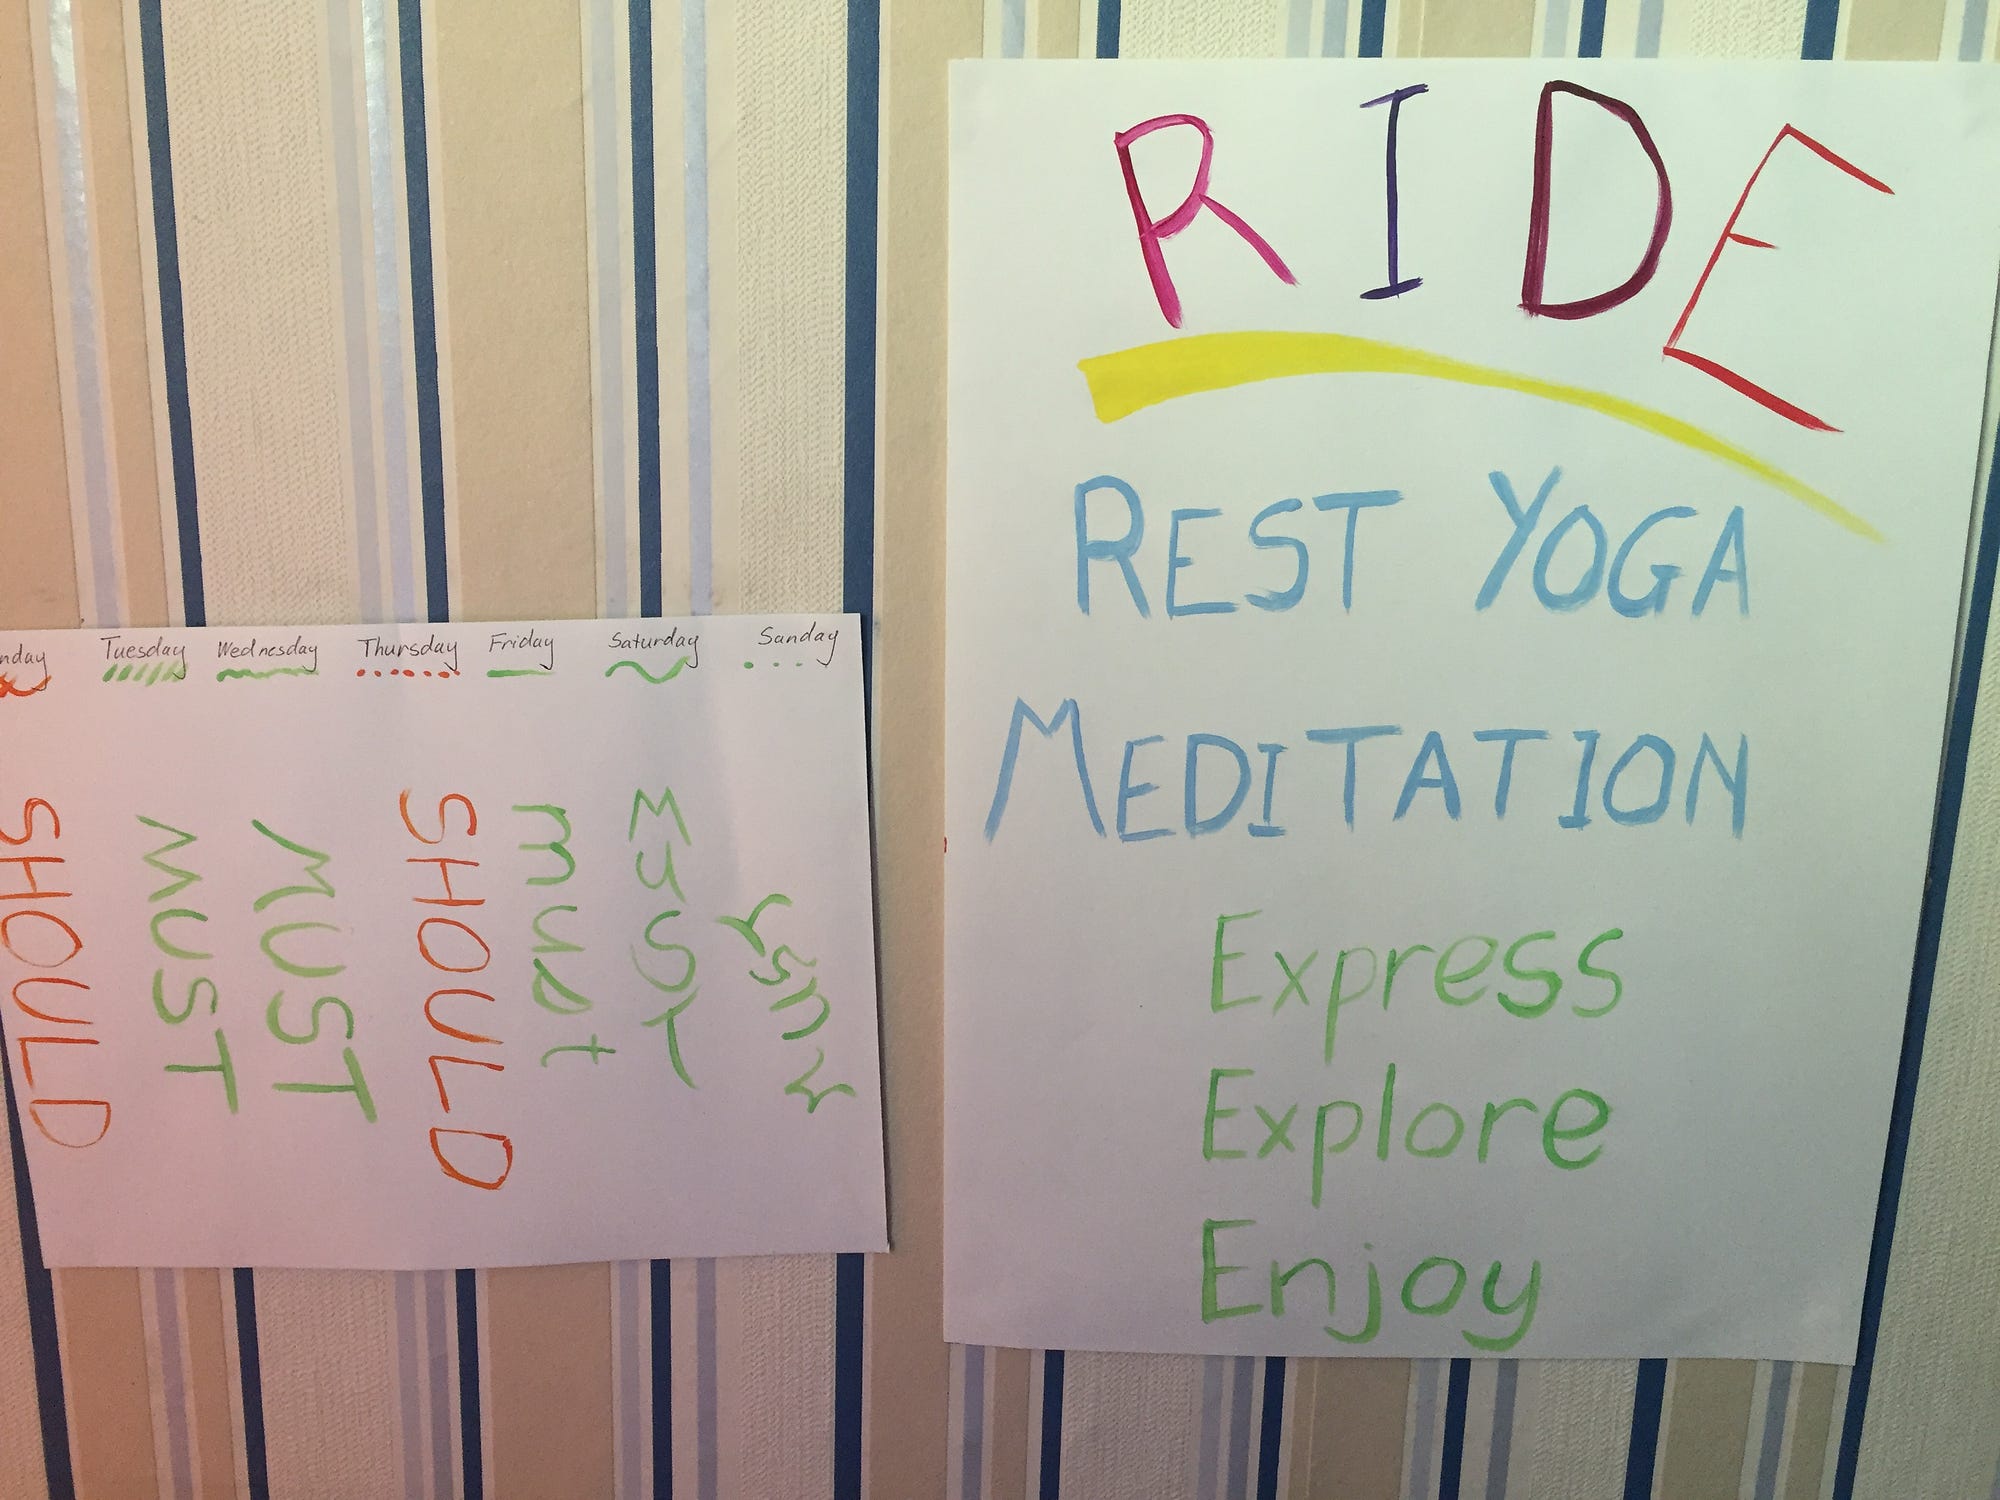 nday Tuesday Wednesday Thursday Friday Saturday Sunday
SHOULD
MUST
MUST
SHOULD
must
MUST
must
RIDE
REST YOGA
MEDITATION
Express
Explore
Enjoy